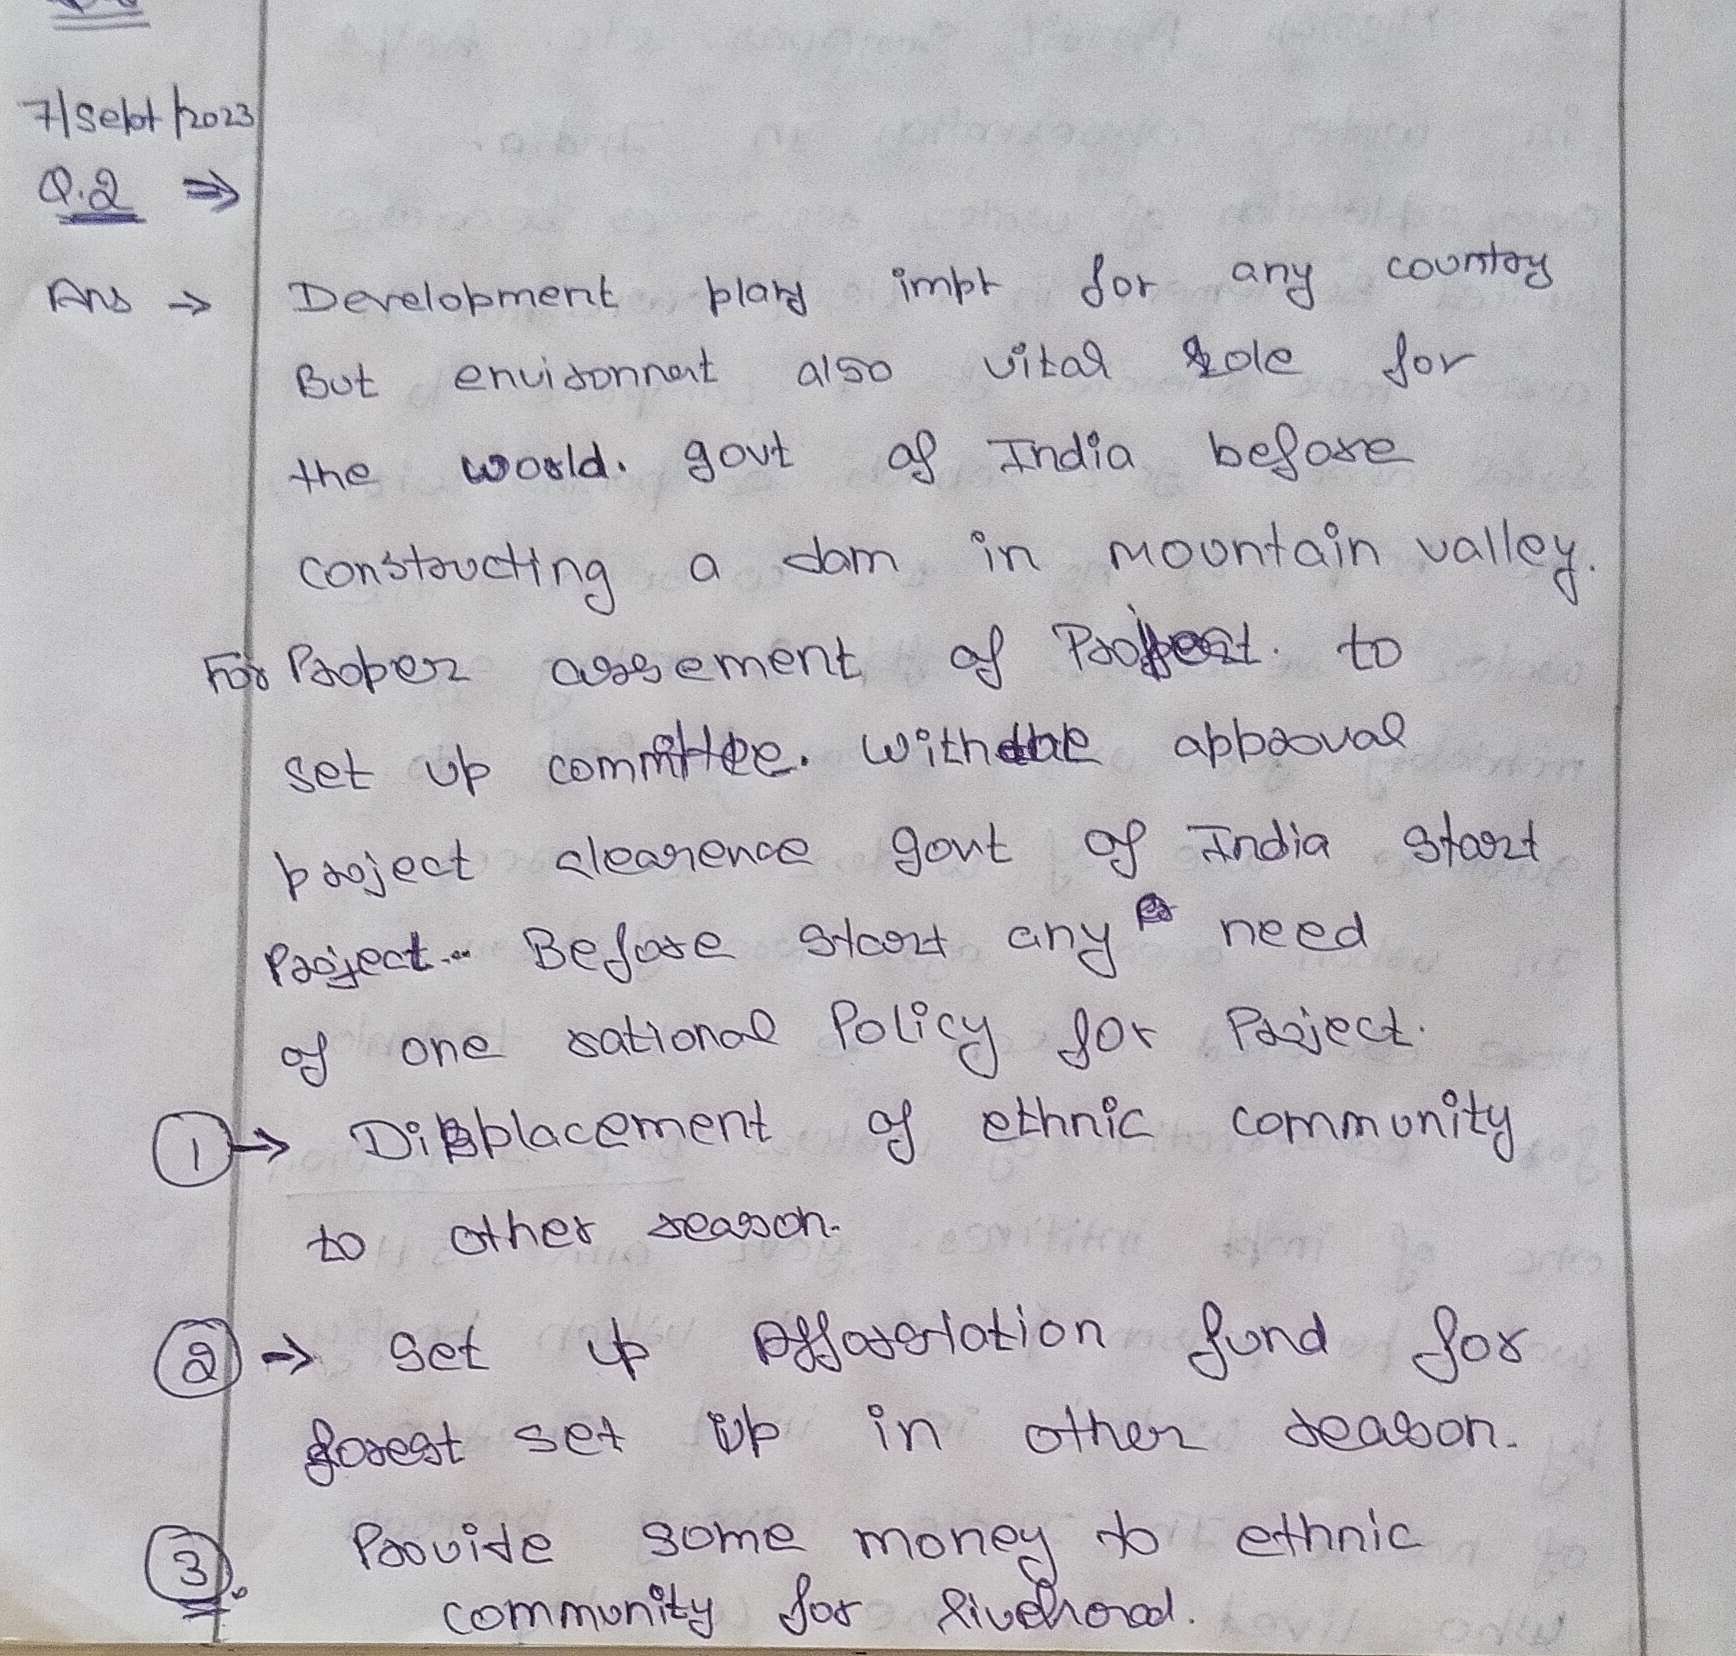 7/Sept/2023
Q.2 ⇒
Ans → Development plays impt for any country
But envisonnant also vital role for
the world. govt of India before
constructing a dam in mountain valley.
For Proper assement of Project. to
set up committee. With the approval
project clearence govt of India start
Project... Before start any need
of one rational Policy for Project.
1 → Displacement of ethnic community
to other reason.
2 → Set up Afforestation fund for
forest set up in other reason.
3. Provide some money to ethnic
community for livelhood.